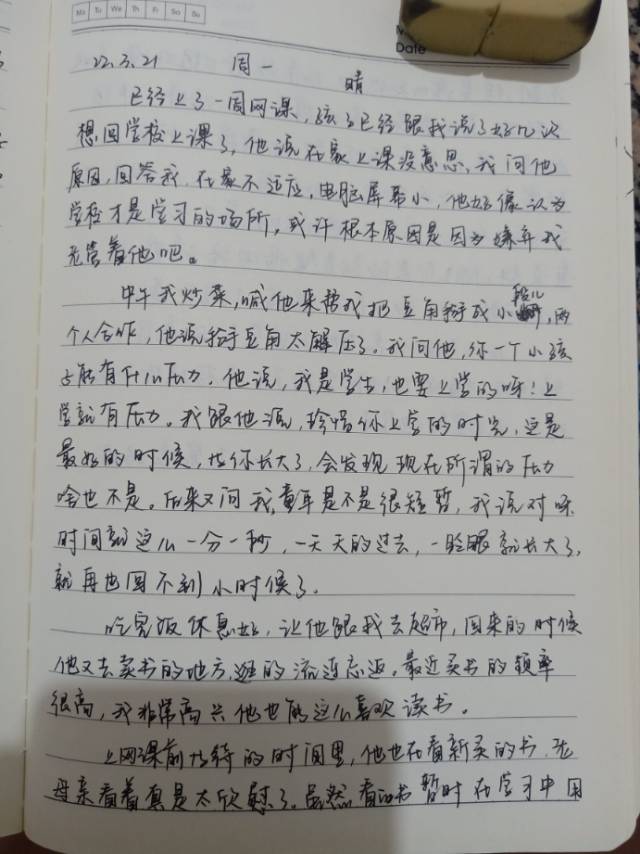 Mo Tu We Th Fr Sa Su
Date
22.3.21 周一 晴
已经上了一周网课，孩子已经跟我说了好几次
想回学校上课了，他说在家上课没意思，我问他
原因，回答我，在家不适应，电脑屏幕小，他好像认为
学校才是学习的场所，或许根本原因是因为嫌弃我
老管着他吧。
中午我炒菜，喊他来帮我把豆角掰成小段儿，两
个人合作，他说掰豆角太解压了。我问他，你一个小孩
子能有什么压力，他说，我是学生，也要上学的呀！上
学就有压力。我跟他说，珍惜你上学的时光，这是
最好的时候，等你长大了，会发现现在所谓的压力
啥也不是。后来又问我，童年是不是很短暂，我说对呀
时间就这么一分一秒，一天天的过去，一眨眼就长大了，
就再也回不到小时候了。
吃完饭休息好，让他跟我去超市，回来的时候
他又去卖书的地方，逛的流连忘返。最近买书的频率
很高，我非常高兴他也能这么喜欢读书。
上网课前等待的时间里，他也在看新买的书，老
母亲看着真是太欣慰了。虽然看的书暂时在学习中用